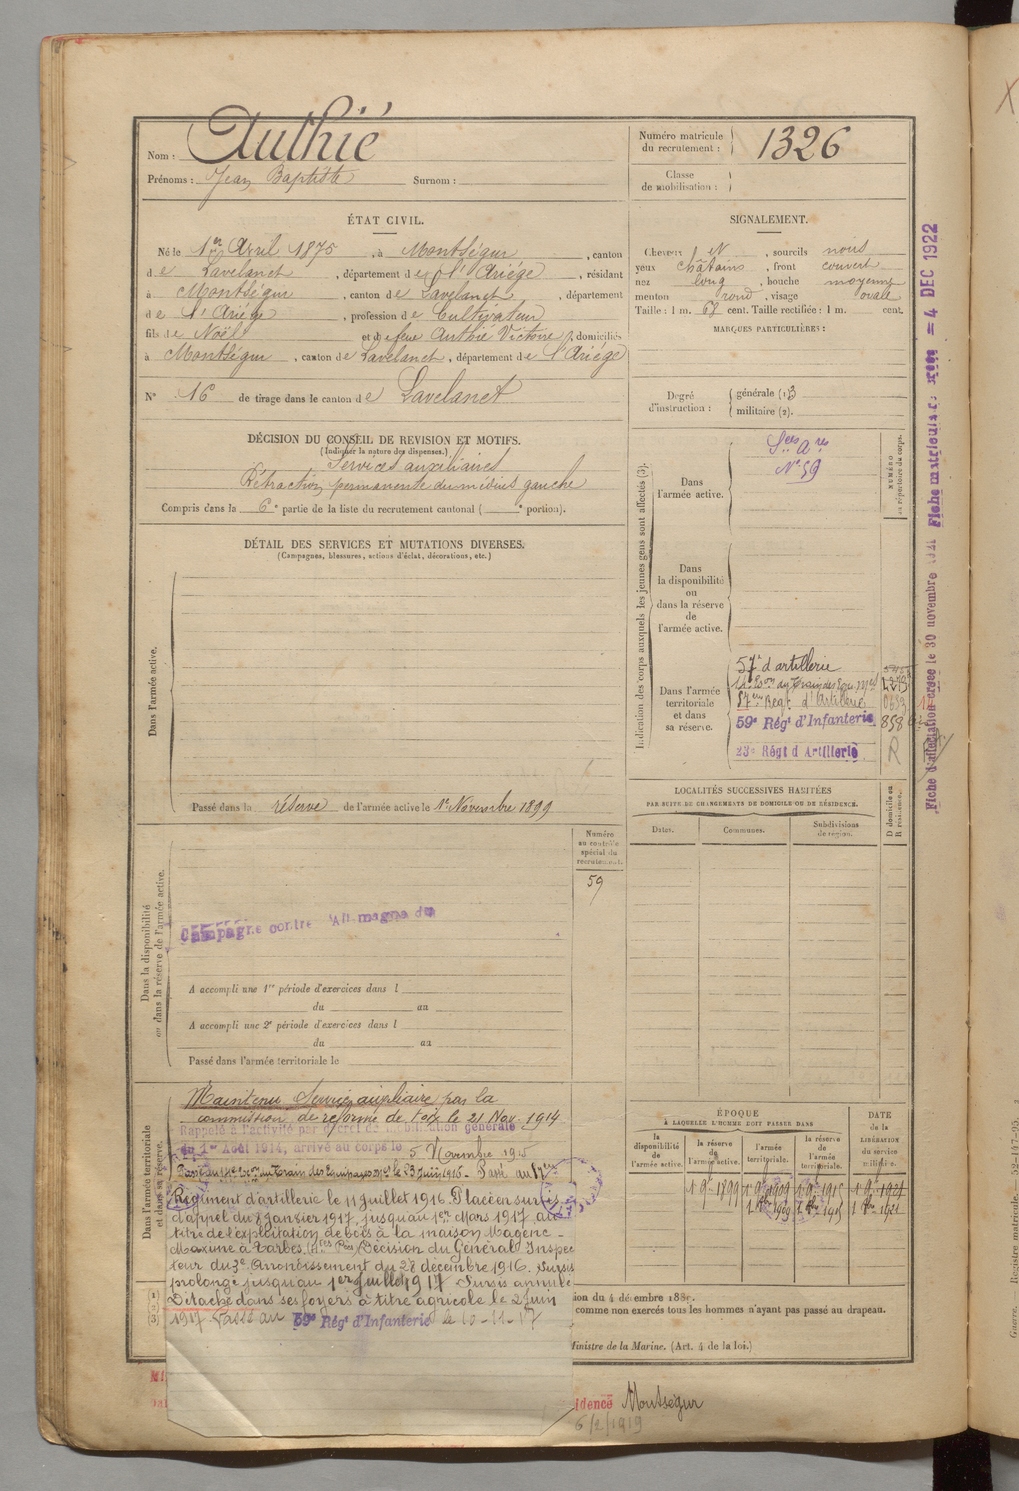 Nom : Authié
Prénoms : Jean Baptiste Surnom :
Numéro matricule du recrutement : 1326
Classe de mobilisation :
ÉTAT CIVIL.
Né le 1er Avril 1875, à Montségur, canton
de Lavelanet, département de l'Ariége, résidant
à Montségur, canton de Lavelanet, département
de l'Ariége, profession de Cultivateur
fils de Noël et de feue Authié Victoire, domiciliés
à Montségur, canton de Lavelanet, département de l'Ariége
N° 16 de tirage dans le canton de Lavelanet
SIGNALEMENT.
Cheveux N, sourcils noirs
yeux châtains, front couvert
nez long, bouche moyenne
menton rond, visage ovale
Taille : 1 m. 68 cent. Taille rectifiée : 1 m. cent.
MARQUES PARTICULIÈRES :
Degré d'instruction : générale (1) 3
militaire (2).
DÉCISION DU CONSEIL DE REVISION ET MOTIFS.
(Indiquer la nature des dispenses.)
Services auxiliaires
Rétraction permanente du médius gauche
Compris dans la 6e partie de la liste du recrutement cantonal ( e portion).
DÉTAIL DES SERVICES ET MUTATIONS DIVERSES.
(Campagnes, blessures, actions d'éclat, décorations, etc.)
Dans l'armée active.
Passé dans la réserve de l'armée active le 1er Novembre 1899
Indication des corps auxquels les jeunes gens sont affectés (3).
NUMÉRO au répertoire du corps.
Dans l'armée active.
Sces Ares
N° 59
Dans la disponibilité ou dans la réserve de l'armée active.
Dans l'armée territoriale et dans sa réserve.
57e d'artillerie
57me Regt d'Artillerie
59e Régt d'Infanterie 858
23e Régt d'Artillerie R
LOCALITÉS SUCCESSIVES HABITÉES
PAR SUITE DE CHANGEMENTS DE DOMICILE OU DE RÉSIDENCE.
Dates.
Communes.
Subdivisions de région.
D domicile ou R résidence.
Numéro au contrôle spécial du recrutement.
59
Dans la disponibilité ou dans la réserve de l'armée active.
Campagne contre Allemagne du
A accompli une 1re période d'exercices dans l
du au
A accompli une 2e période d'exercices dans l
du au
Passé dans l'armée territoriale le
Dans l'armée territoriale et dans sa réserve.
Maintenu Service auxiliaire par la
commission de réforme de Foix le 21 Nov. 1914
Rappelé à l'activité par décret de mobilisation générale
du 1er Août 1914, arrivé au corps le 5 Novembre 1915
Train des Equipages le 23 Juin 1916 - Passé au 57me
Régiment d'artillerie le 11 juillet 1916. Placé en sursis
d'appel du 8 Janvier 1917, jusqu'au 1er Mars 1917 au
titre de l'exploitation de bois à la maison Magenc -
Maxime à Tarbes (Htes Pées) Décision du Général Inspec
teur du 3e Arrondissement du 28 decembre 1916. Sursis
prolongé jusqu'au 1er Juillet 1917 Sursis annulé
Détaché dans ses foyers à titre agricole le 2 Juin
1917 Passé au 59e Régt d'Infanterie le 10-11-17
ÉPOQUE
A LAQUELLE L'HOMME DOIT PASSER DANS
la disponibilité de l'armée active.
la réserve de l'armée active.
l'armée territoriale.
la réserve de l'armée territoriale.
DATE de la LIBÉRATION du service militaire.
1 9bre 1899
1 8bre 1909
1 8bre 1915
1 8bre 1921
(1)
(2)
(3)
ion du 4 décembre 1889.
comme non exercés tous les hommes n'ayant pas passé au drapeau.
Ministre de la Marine. (Art. 4 de la loi.)
idence Montségur
6/2/1919
Fiche d'affectation créée le 30 novembre
Fiche matricule créée = 4 DEC 1922